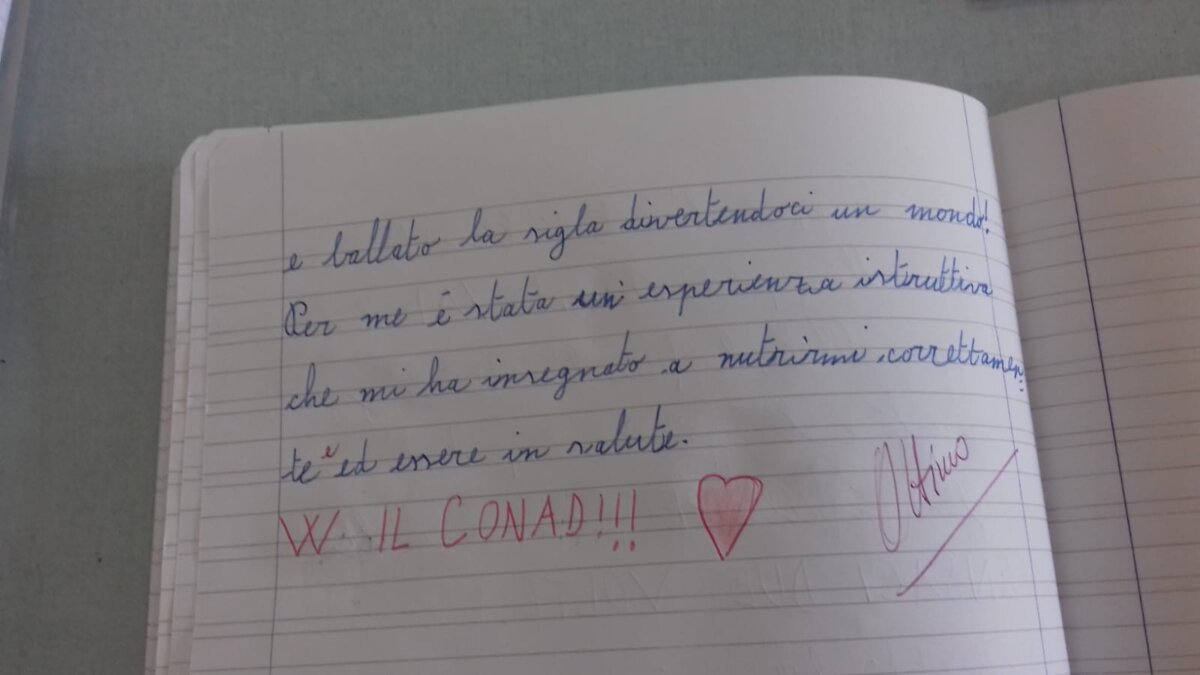 e ballato la sigla divertendoci un mondo!
Per me é stata un' esperienza istruttiva
che mi ha insegnato a nutrirmi correttamen=
te e ed essere in salute.
W IL CONAD!!!
Ottimo